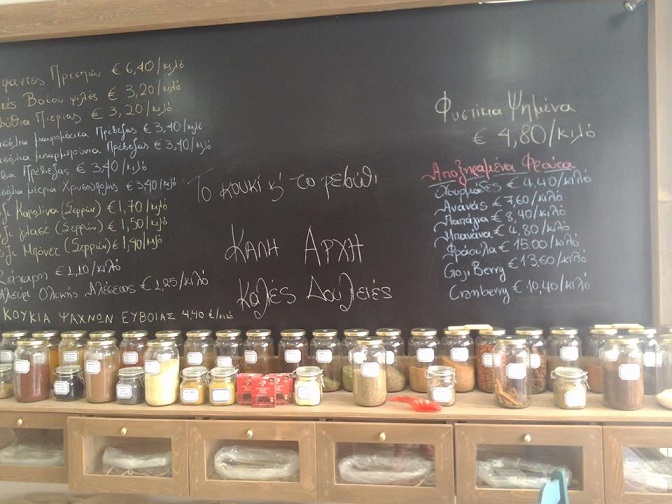 Πρεσπών € 6,40/κιλό
Βοΐου ψιλές € 3,20/κιλό
Πιερίας € 3,20/κιλό
μαυρομάτικα Πρέβεζας € 3,40/κιλό
μπαρμπούνια Πρέβεζας € 3,40/κιλό
Πρέβεζας € 3,40/κιλό
Χρυσούπολης € 3,40/κιλό
Καρολίνα (Σερρών) € 1,70/κιλό
γλασέ (Σερρών) € 1,50/κιλό
Μπόνετ (Σερρών) € 1,40/κιλό
Ζάχαρη € 1,10/κιλό
Αλεύρι Ολικής Αλέσεως € 1,25/κιλό
ΚΟΥΚΙΑ ΨΑΧΝΩΝ ΕΥΒΟΙΑΣ 4,40 €/κιλό
Το κουκί κ' το ρεβύθι
ΚΑΛΗ ΑΡΧΗ
Καλές Δουλειές
Φυστίκια Ψημένα
€ 4,80/κιλό
Αποξηραμένα Φρούτα
Χουρμάδες € 4,40/κιλό
Ανανάς € 7,60/κιλό
Παπάγια € 8,40/κιλό
Μπανάνα € 4,80/κιλό
Φράουλα € 15,00/κιλό
Goji Berry € 13,60/κιλό
Cranberry € 10,40/κιλό